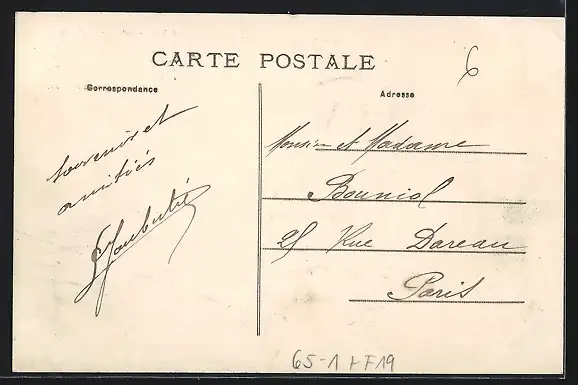 CARTE POSTALE
6
Correspondance
Adresse
souvenir et
amitiés
Monsieur et Madame
Bouniol
25 Rue Dareau
Paris
65-1 + F19